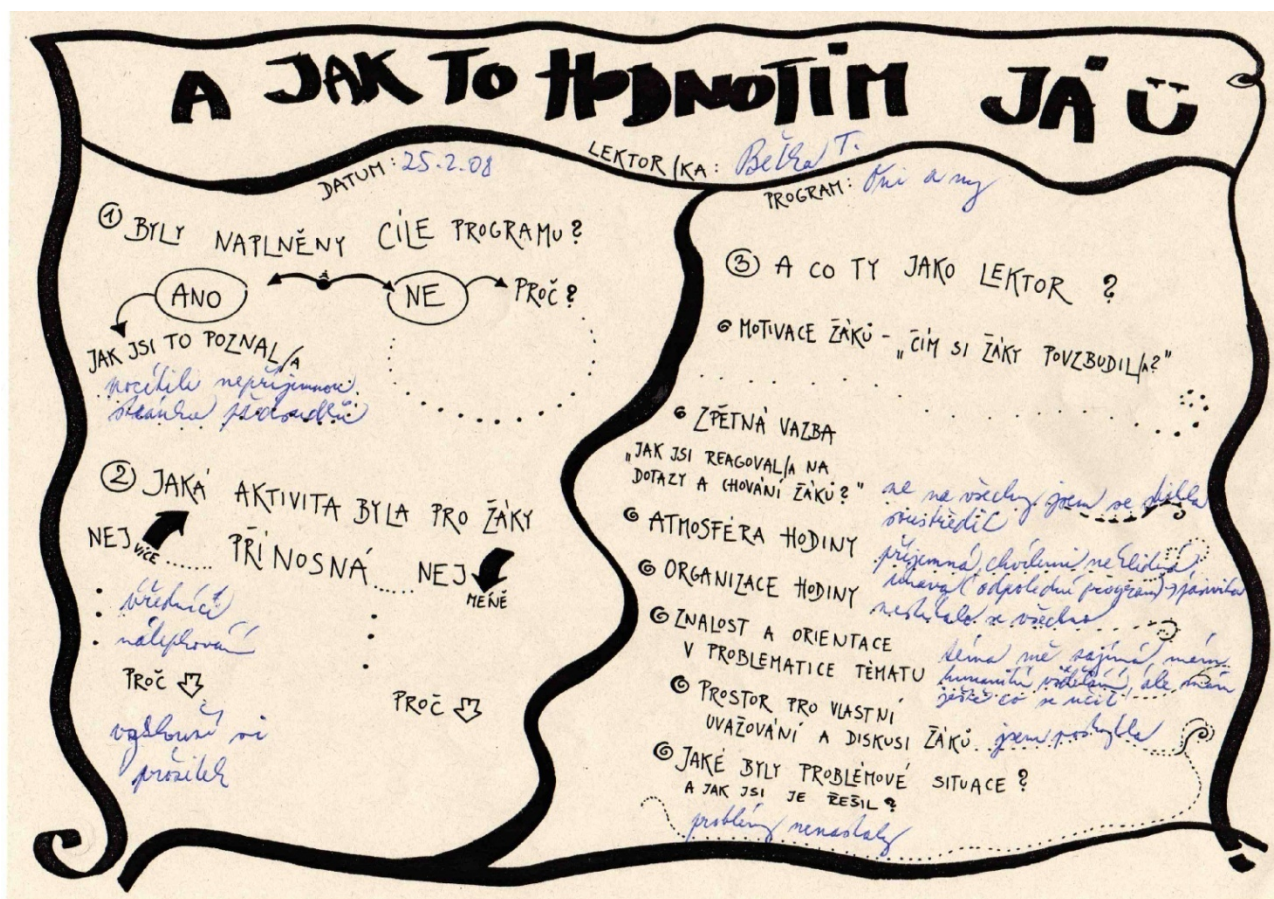 A JAK TO HODNOTÍM JÁ Ü
DATUM: 25.2.08
LEKTOR/KA: Běťka T.
PROGRAM: Oni a my
① BYLY NAPLNĚNY CÍLE PROGRAMU?
ANO NE PROČ?
JAK JSI TO POZNAL/A
pocítili nepříjemnou
stránku předsudků
② JAKÁ AKTIVITA BYLA PRO ŽÁKY
NEJ VÍCE PŘÍNOSNÁ NEJ MÉNĚ
úředníci
nálepkování
PROČ
vyzkouší si
prožitek
PROČ
③ A CO TY JAKO LEKTOR ?
MOTIVACE ŽÁKŮ - „ČÍM SI ŽÁKY POVZBUDIL/A?"
ZPĚTNÁ VAZBA
„JAK JSI REAGOVAL/A NA
DOTAZY A CHOVÁNÍ ŽÁKŮ?"
ne na všechny jsem se stihla
soustředit
ATMOSFÉRA HODINY
příjemná, chvílemi neklidná
únava (odpolední program)
ORGANIZACE HODINY
nestihalo se všechno
ZNALOST A ORIENTACE
V PROBLEMATICE TÉMATU
téma mě zajímá, mám
humanitní vzdělání, ale mám
ještě co se učit
PROSTOR PRO VLASTNÍ
UVAŽOVÁNÍ A DISKUSI ŽÁKŮ jsem poskytla
JAKÉ BYLY PROBLÉMOVÉ SITUACE?
A JAK JSI JE ŘEŠIL?
problémy nenastaly